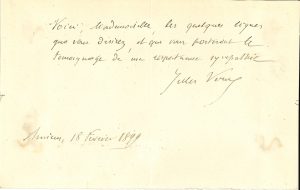 Voici, Mademoiselle les quelques lignes
que vous désirez, et qui vous porteront le
témoignage de ma respectueuse sympathie
Jules Verne
Amiens, 18 Février 1899